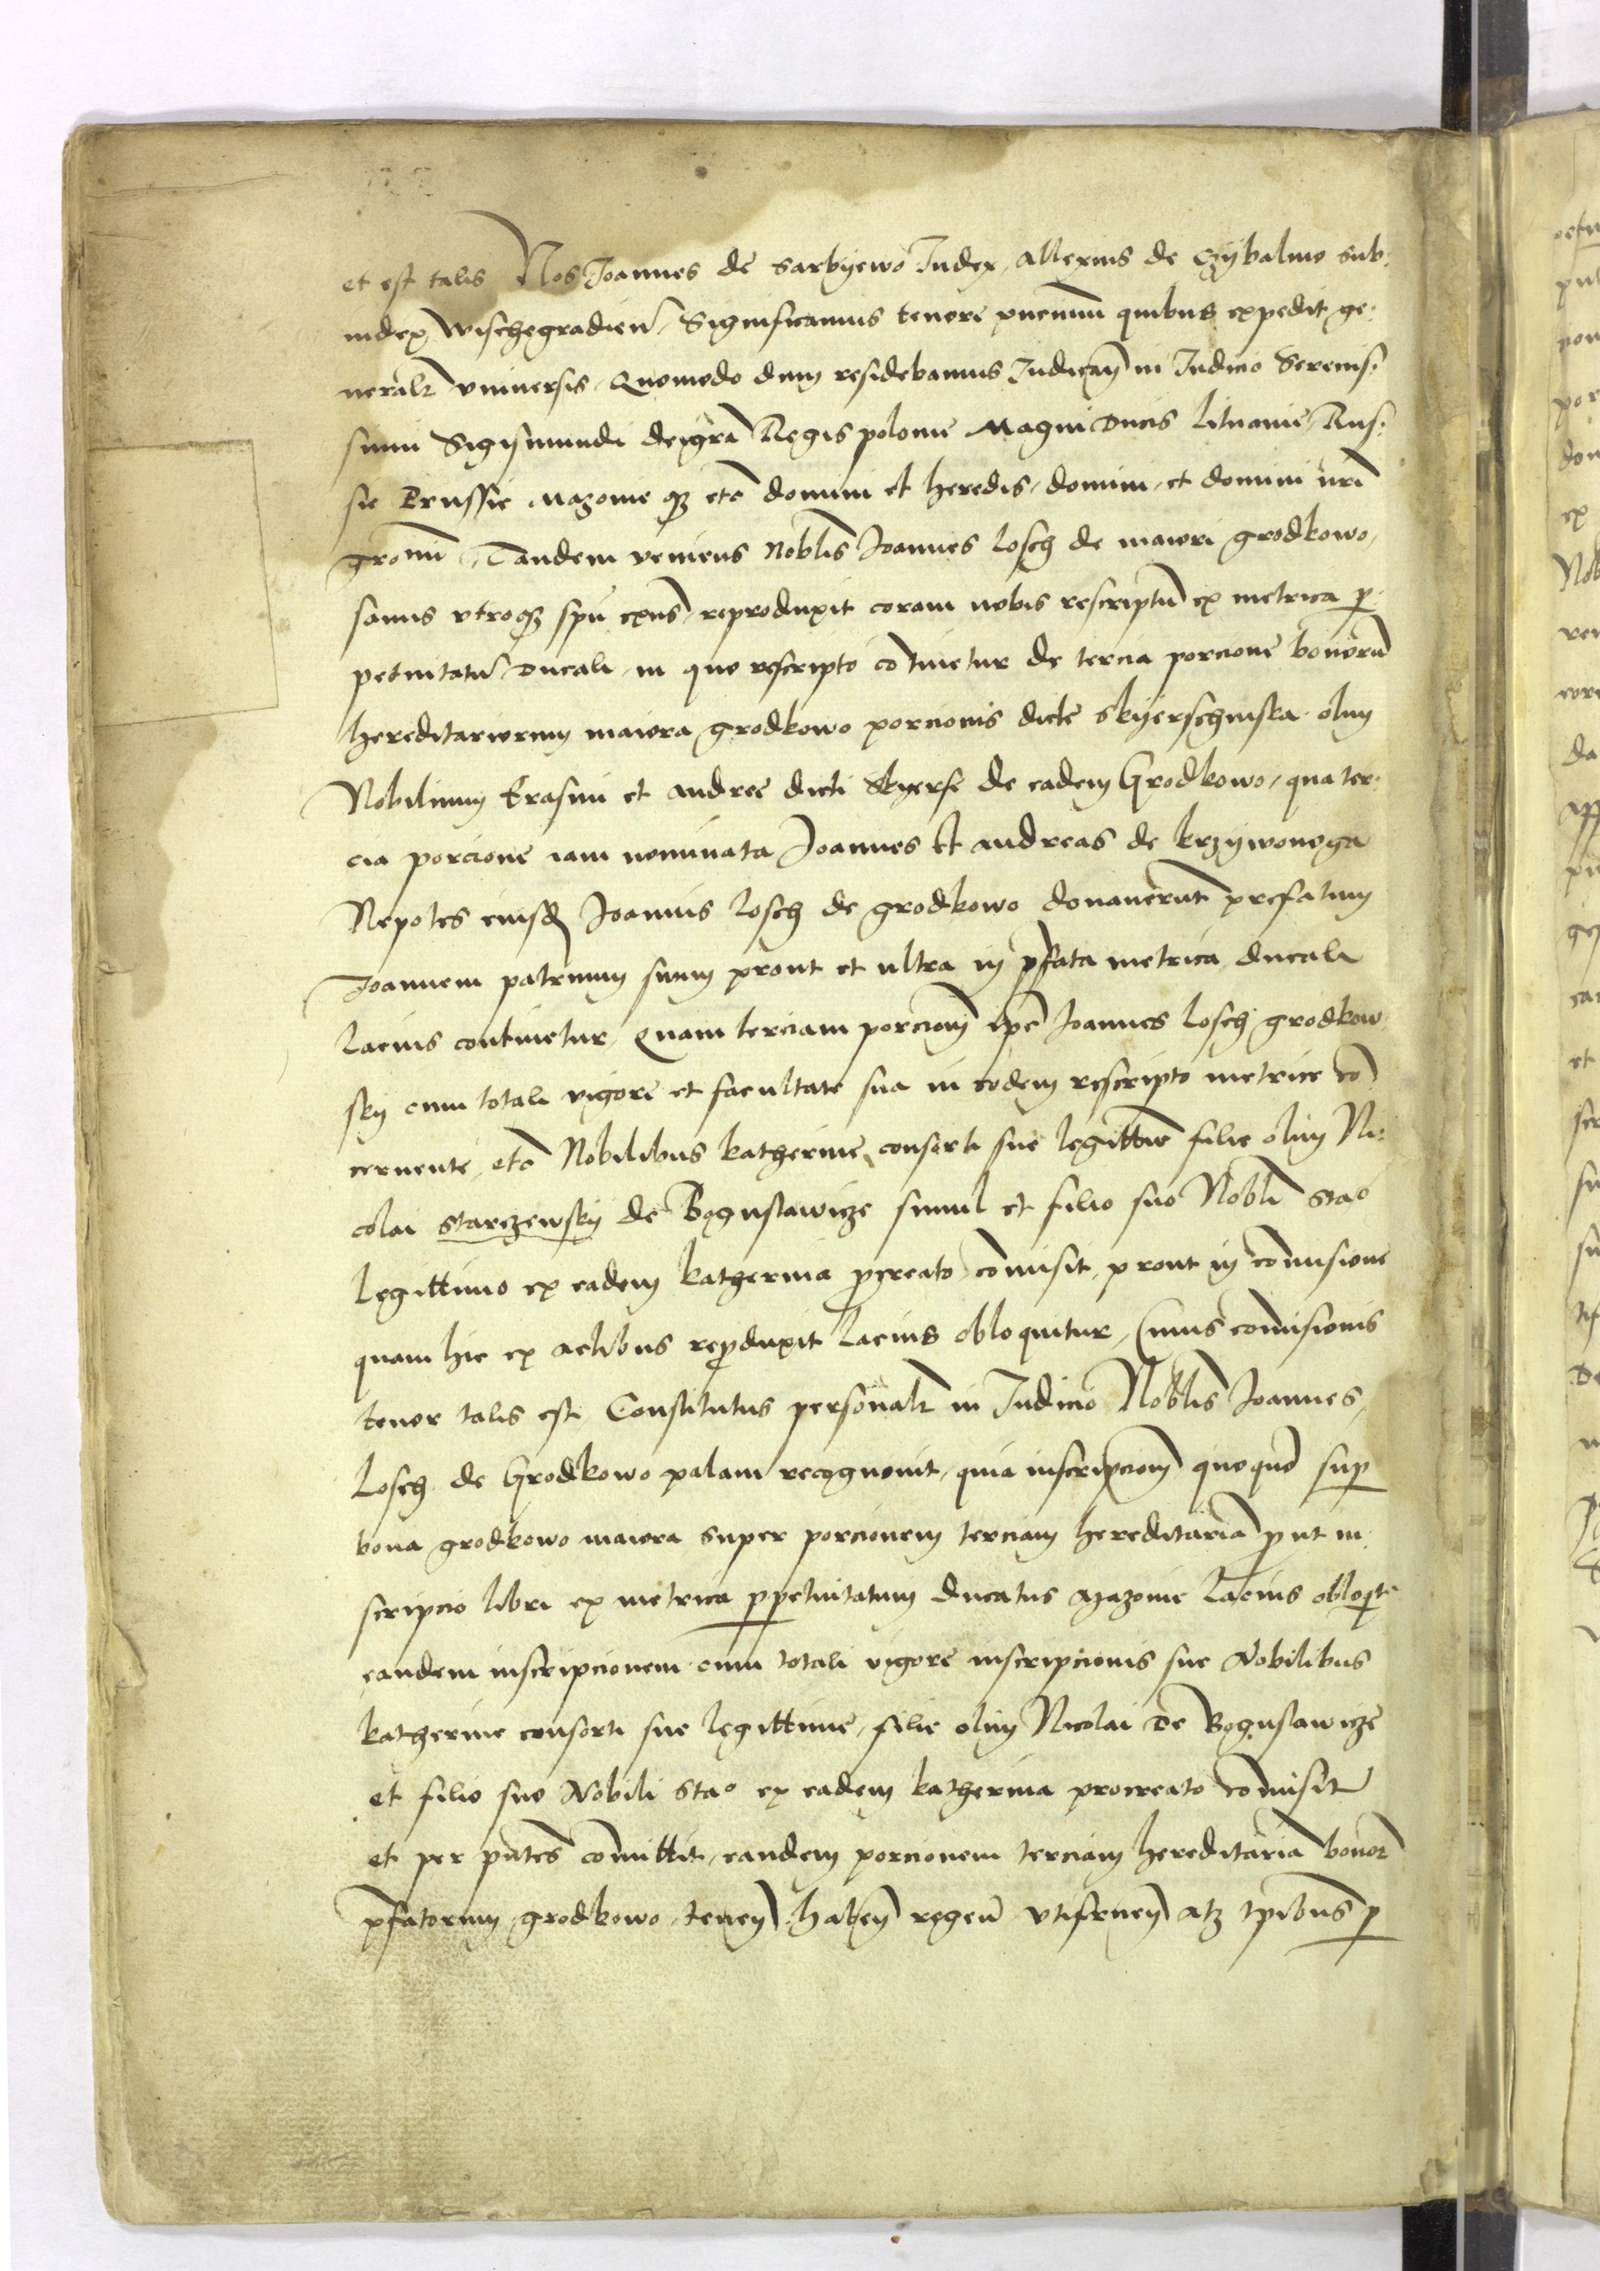 et est talis Nos Joannes de Sarbyewo Judex, Allexius de Czÿbalino sub:
iudex Wischegradien̄ Significamus tenore pn̄cium quibus expedit ge:
neralr̄ vniversis, Quomodo dum residebamus Judican̄ in Judicio Serenis:
simi Sigismundi dei gr̄a Regis polonie Magni Ducis Lituanie, Rus:
sie Prussie Mazouie q3 etc̄ domini et heredis, domini, et domini nr̄i
gr̄osmi, Tandem veniens Nobl̄is Joannes Losch de maiori grodkowo,
sanus vtroq3 spū exn̄s, reproduxit coram nobis rescriptū ex metrica p̱
petuitatū Ducali, in quo rescripto cōtinetur de tercia porcione bonorū
hereditariorum maiora grodkowo porcionis dicte Skÿerschinska olim
Nobilium Erasmi et andree dicti Skyersi de eadem Grodkowo, qua ter:
cia porcione iam nominata Joannes et andreas de krzywonoga
Nepotes eiusd̄ Joannis Losch de grodkowo donaverunt prefatum
Joannem patruum suum prout et ultra in p̄fata metrica ducali
Lacius continetur, Quam terciam porcionē ip̄e Joannes Losch grodkow
sky cum totali vigore et facultate sua in eodem rescripto metrice cō
cernente, etc̄ Nobilibus katherine, consorti sue legittime filie olim Ni:
colai Starczewsky de Boguslawicze simul et filio suo Nobli Stao
legittimo ex eadem katherina p̱creato, cōmisit, prout in cōmisione
quam hic ex actibus rep̱duxit lacius obloquitur, Cuius comisionis
tenor talis est, Constitutus personalr̄ in Judicio Nobl̄is Joannes,
Losch de Grodkowo palam recognovit, quia inscripcionē quoquo sup̱
bona grodkowo maiora super porcionem terciam hereditariā p̱ut in
scripcio libri ex metrica p̱petuitatum ducatus Mazouie Lacius obloqt̄
eandem inscripcionem cum totali vigore inscripcionis sue Nobilibus
katherine consorti sue legittime, filie olim Nicolai de Boguslawicze
et filio suo Nobili Stao ex eadem katherina procreato cōmisit
et per pn̄tes cōmittit, eandem porcionem terciam hereditariā bonor̄
p̄fatorum, grodkowo, tenen̄ haben̄ regen̄ vtifruen̄ at3 tp̄ibus p̱